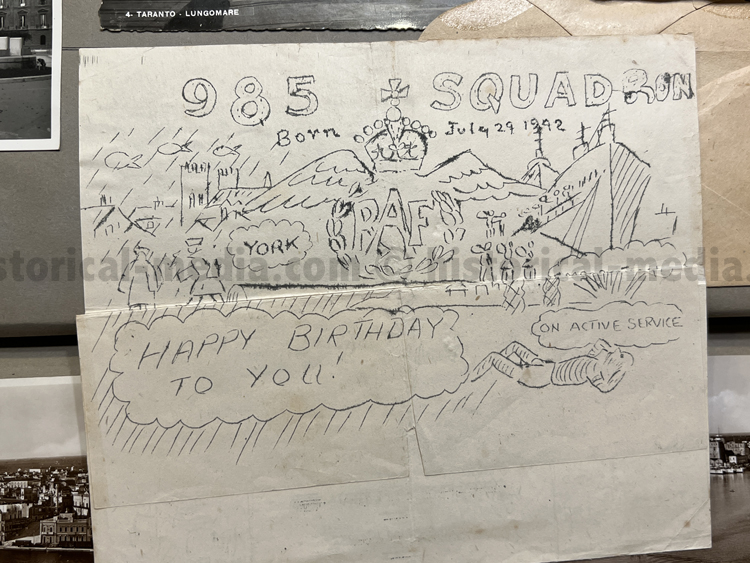 4- TARANTO - LUNGOMARE
985 SQUADRON
Born July 29 1942
RAF
YORK
storical-media.com © historical-media.
HAPPY BIRTHDAY
TO YOU!
ON ACTIVE SERVICE